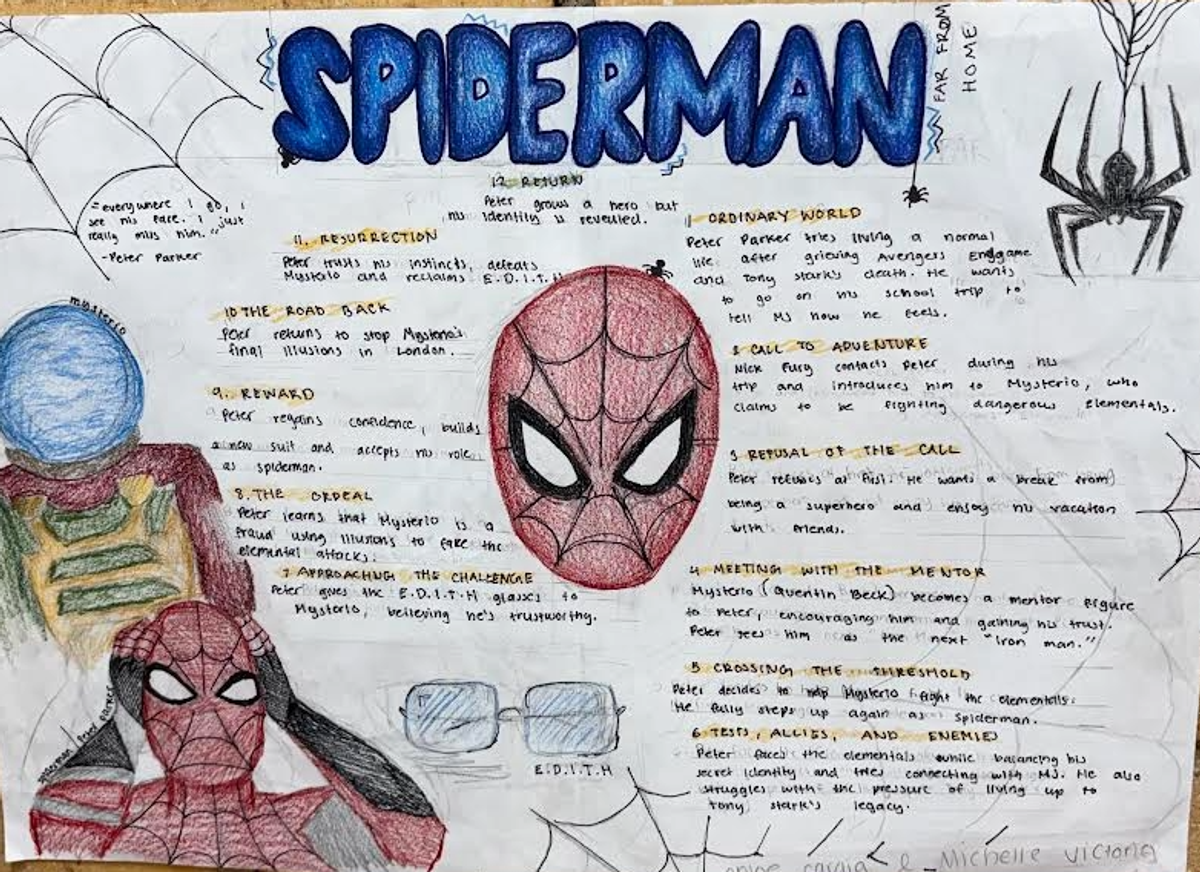 SPIDERMAN
FAR FROM
HOME
"everywhere I go, I
see his face. I just
really miss him."
-Peter Parker
12 RETURN
Peter grows a hero but
his identity is revealed.
1 ORDINARY WORLD
Peter Parker tries living a normal
life after grieving Avengers Endgame
and Tony stark's death. He wants
to go on his school trip to
tell MJ how he feels.
2 CALL TO ADVENTURE
Nick Fury contacts Peter during his
trip and introduces him to Mysterio, who
claims to be fighting dangerous Elementals.
3 REFUSAL OF THE CALL
Peter refuses at first. He wants a break from
being a superhero and enjoy his vacation
with friends.
4 MEETING WITH THE MENTOR
Mysterio (Quentin Beck) becomes a mentor figure
to Peter, encouraging him and gaining his trust.
Peter sees him as the next "Iron man."
5 CROSSING THE THRESHOLD
Peter decides to help Mysterio fight the elementals.
He fully steps up again as spiderman.
6 TESTS, ALLIES, AND ENEMIES
Peter faces the elementals while balancing his
secret identity and tries connecting with MJ. He also
struggles with the pressure of living up to
Tony stark's legacy.
7 APPROACHING THE CHALLENGE
Peter gives the E.D.I.T.H glasses to
Mysterio, believing he's trustworthy.
8. THE ORDEAL
Peter learns that Mysterio is a
fraud using illusions to fake the
elemental attacks.
9. REWARD
Peter regains confidence, builds
a new suit and accepts his role
as spiderman.
10 THE ROAD BACK
Peter returns to stop Mysterio's
final illusions in London.
11. RESURRECTION
Peter trusts his instincts, defeats
Mysterio and reclaims E.D.I.T.H
mysterio
spiderman / Peter Parker
E.D.I.T.H
& Michelle Victoria